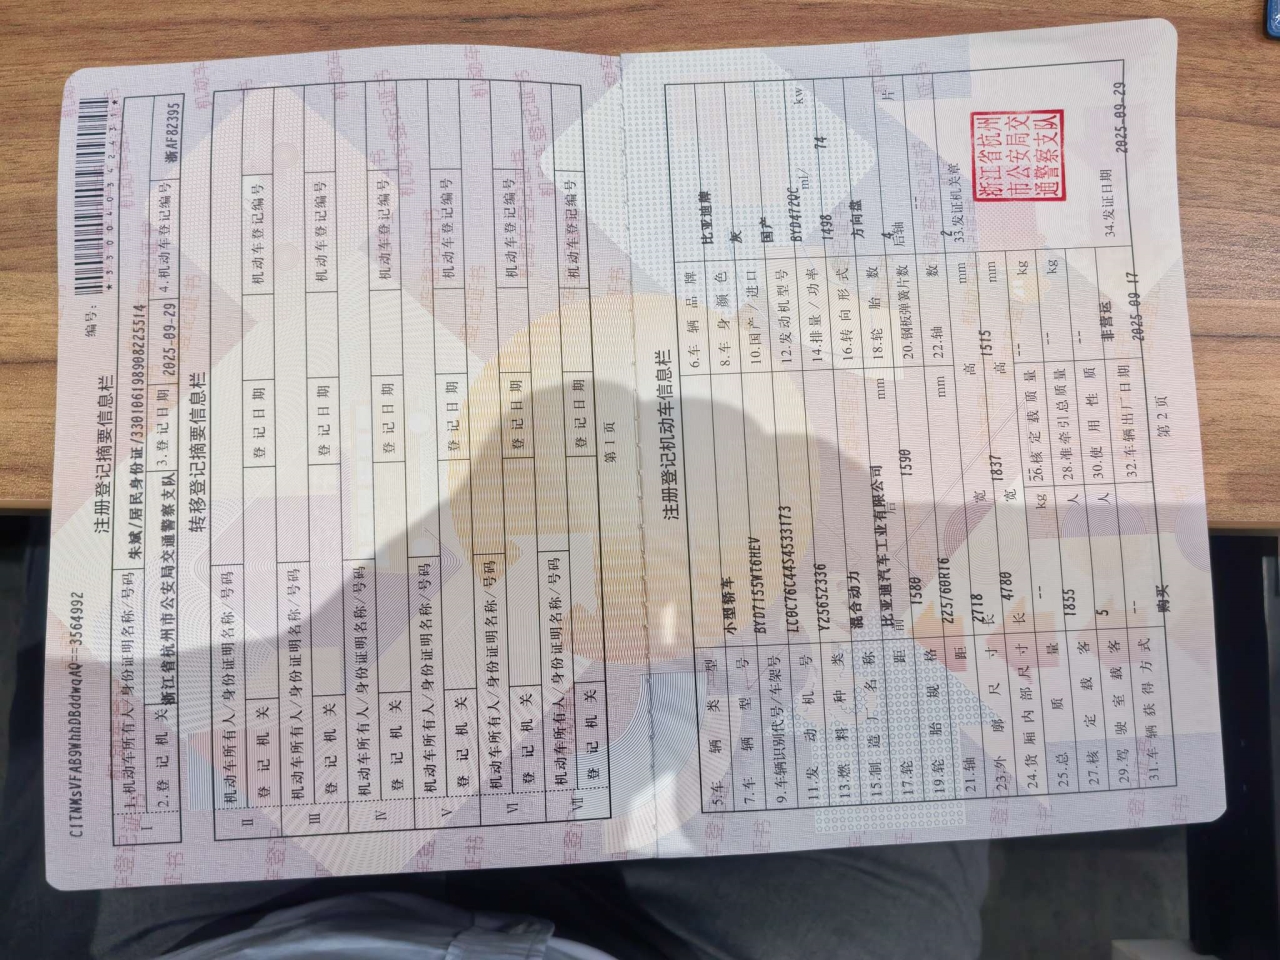 C1TNMsVFAB9WhhDBddwqAQ==3564992
注册登记摘要信息栏
编号:
*330040342431*
Ⅰ 1.机动车所有人/身份证明名称/号码 朱斌/居民身份证/330106198908225514
2.登记机关 浙江省杭州市公安局交通警察支队 3.登记日期 2025-09-29 4.机动车登记编号 浙AF82395
转移登记摘要信息栏
Ⅱ 机动车所有人/身份证明名称/号码
登记机关 登记日期 机动车登记编号
Ⅲ 机动车所有人/身份证明名称/号码
登记机关 登记日期 机动车登记编号
Ⅳ 机动车所有人/身份证明名称/号码
登记机关 登记日期 机动车登记编号
Ⅴ 机动车所有人/身份证明名称/号码
登记机关 登记日期 机动车登记编号
Ⅵ 机动车所有人/身份证明名称/号码
登记机关 登记日期 机动车登记编号
Ⅶ 机动车所有人/身份证明名称/号码
登记机关 登记日期 机动车登记编号
第1页
注册登记机动车信息栏
5.车辆类型 小型轿车 6.车辆品牌 比亚迪牌
7.车辆型号 BYD7155WT6HEV 8.车身颜色 灰
9.车辆识别代号/车架号 LC0C76C44S4533173 10.国产/进口 国产
11.发动机号 YZ5652336 12.发动机型号 BYD472QC
13.燃料种类 混合动力 14.排量/功率 1498 ml/ 74 kw
15.制造厂名称 比亚迪汽车工业有限公司 16.转向形式 方向盘
17.轮距 前 1580 后 1590 mm 18.轮胎数 4
19.轮胎规格 225/60R16 20.钢板弹簧片数 后轴 -- 片
21.轴距 2718 mm 22.轴数 2
23.外廓尺寸 长 4780 宽 1837 高 1515 mm
24.货厢内部尺寸 长 -- 宽 高 mm
25.总质量 1855 kg 26.核定载质量 -- kg
27.核定载客 5 人 28.准牵引总质量 -- kg
29.驾驶室载客 -- 人 30.使用性质 非营运
31.车辆获得方式 购买 32.车辆出厂日期 2025-09-17
33.发证机关章
浙江省杭州
市公安局交
通警察支队
34.发证日期 2025-09-29
第2页